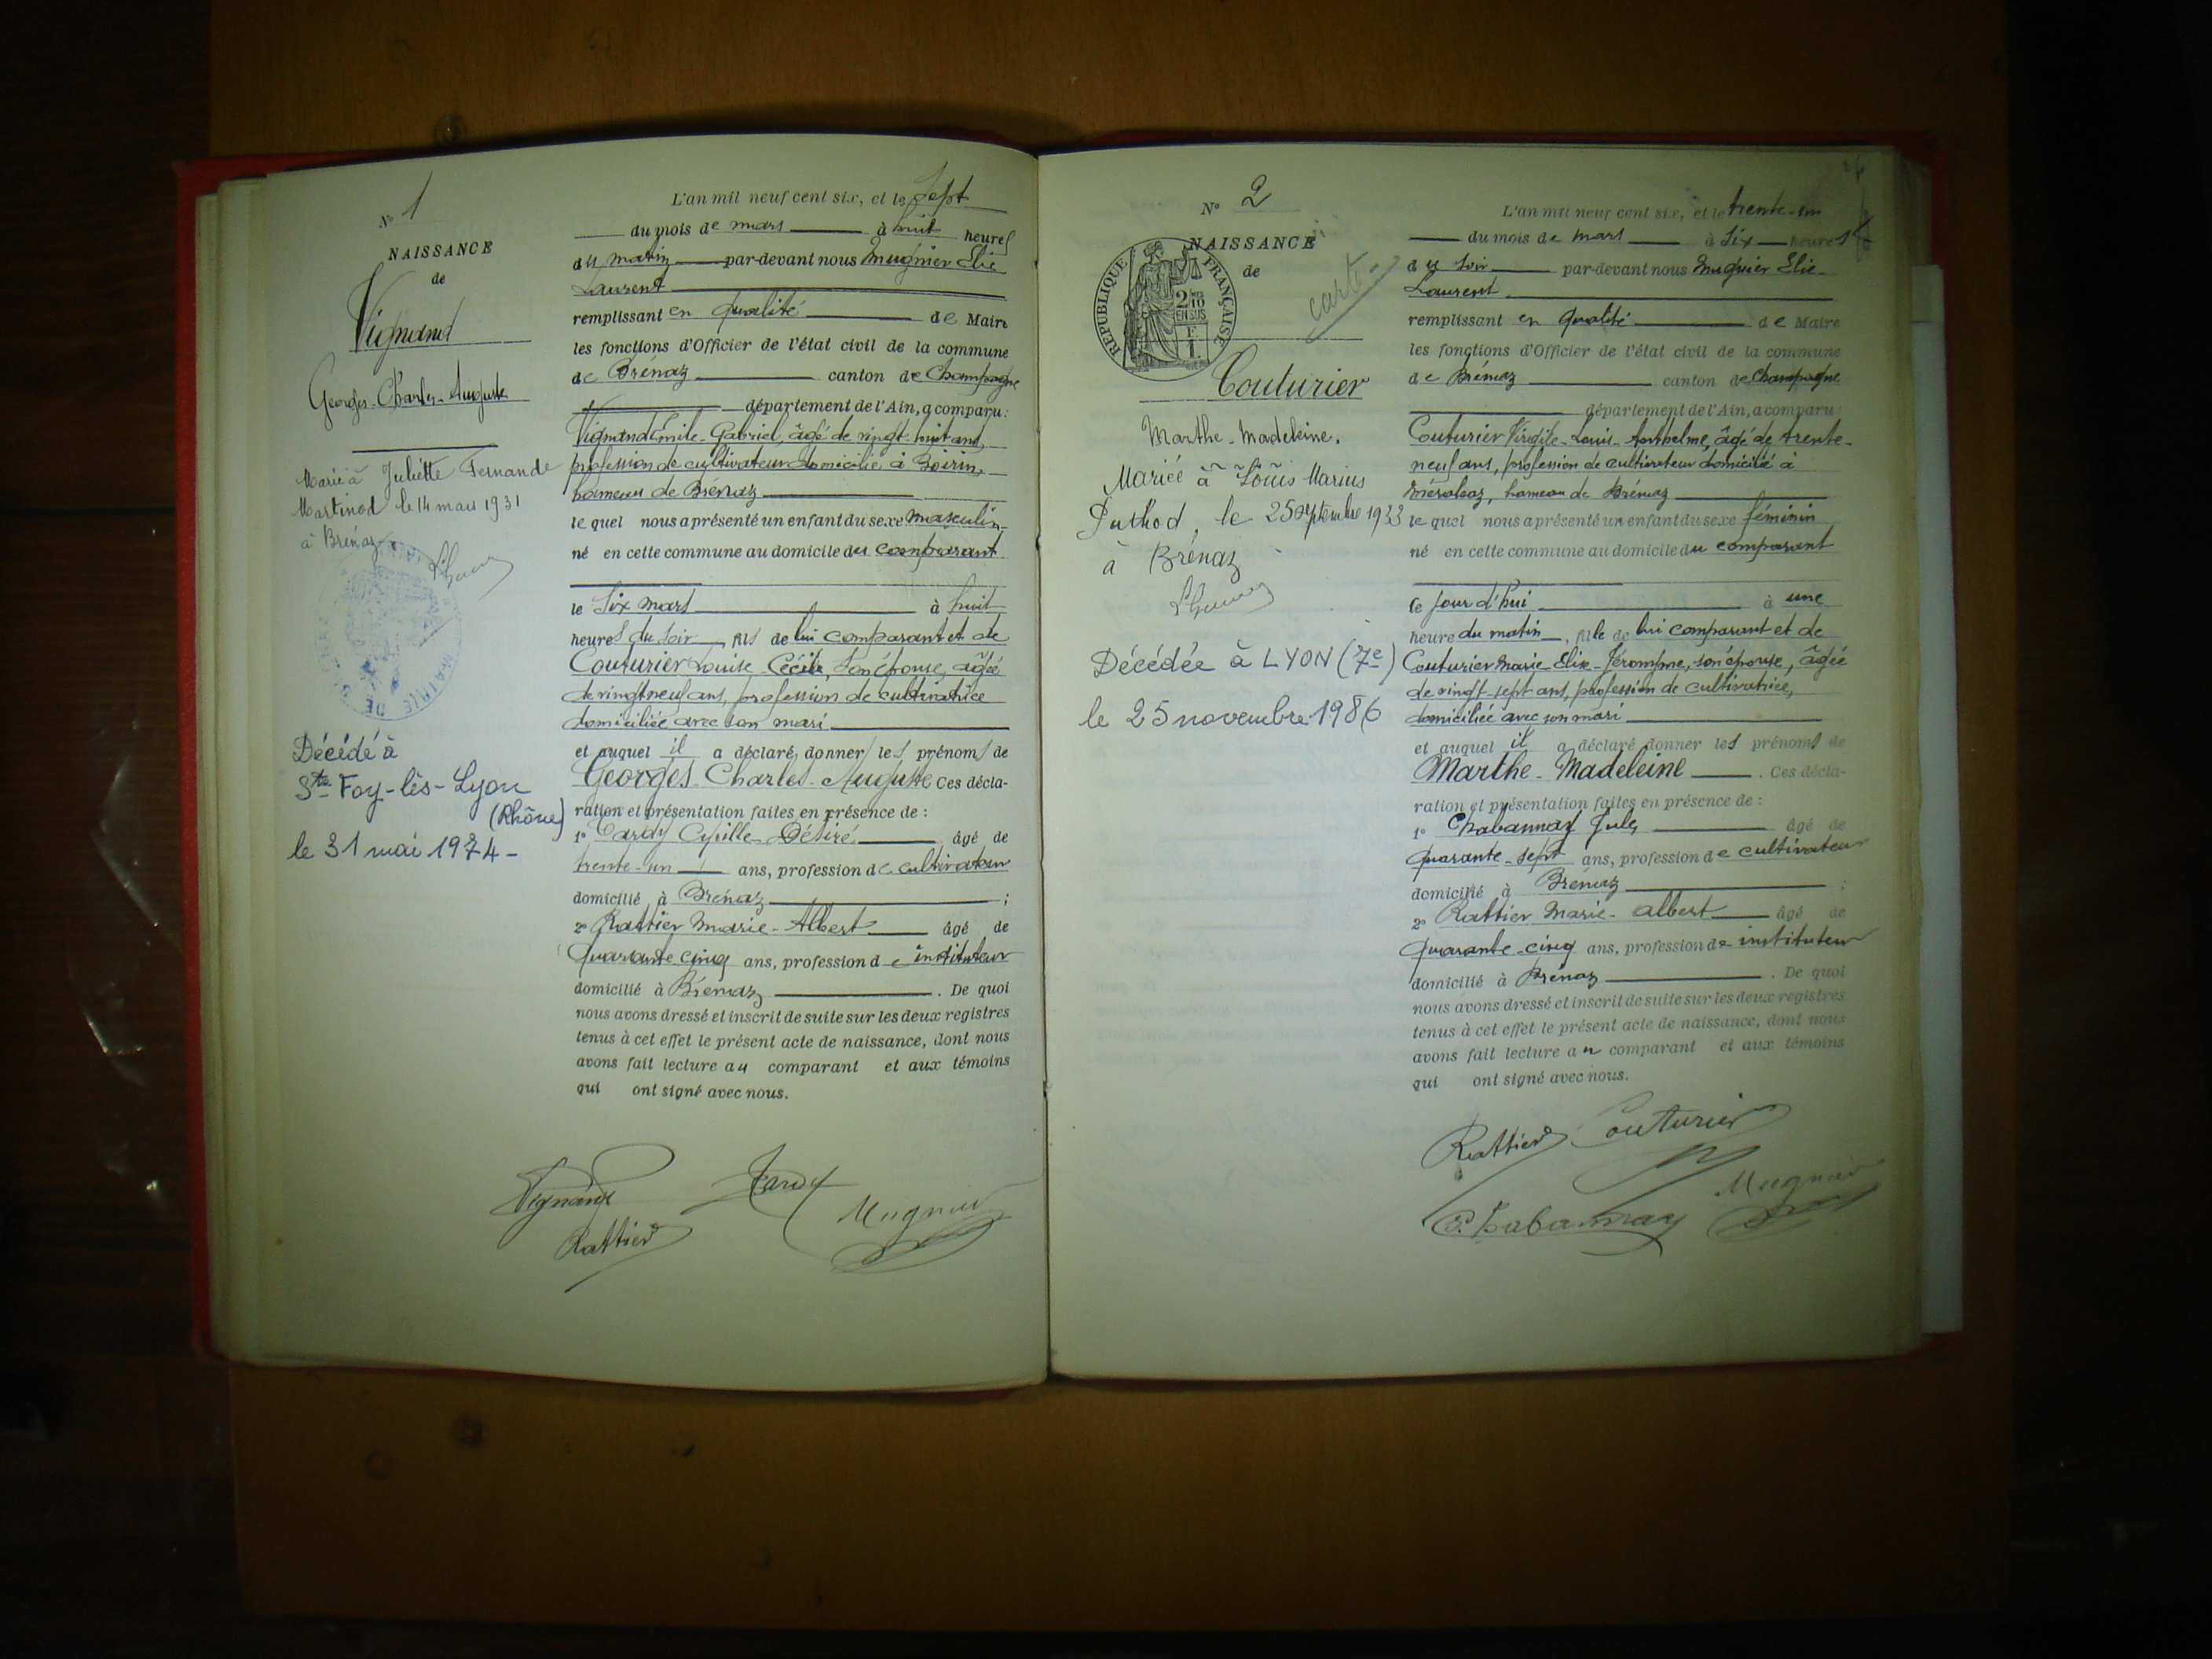 N° 1
NAISSANCE
de
Vignand
Georges-Charles-Auguste
Marié à Juliette Fernande
Martinod le 14 mars 1931
à Brénaz
Décédé à
Ste Foy-lès-Lyon
(Rhône)
le 31 mai 1974-
L'an mil neuf cent six, et le sept
du mois de mars à huit heures
du matin par-devant nous Mugnier Elie
Laurent
remplissant en qualité de Maire
les fonctions d'Officier de l'état civil de la commune
de Brénaz canton de Champagne
département de l'Ain, a comparu:
Vignand Emile-Gabriel, âgé de vingt-huit ans,
profession de cultivateur domicilié à
hameau de Brénaz
lequel nous a présenté un enfant du sexe masculin
né en cette commune au domicile du comparant
le six mars à huit
heures du soir, fils de lui comparant et de
Couturier Louise-Cécile, son épouse, âgée
de vingt neuf ans, profession de cultivatrice
domiciliée avec son mari
et auquel il a déclaré donner les prénoms de
Georges-Charles-Auguste Ces décla-
ration et présentation faites en présence de :
1° Tardy Cyrille-Désiré âgé de
trente-un ans, profession de cultivateur
domicilié à Brénaz ;
2° Rattier Marie-Albert âgé de
quarante cinq ans, profession de instituteur
domicilié à Brénaz . De quoi
nous avons dressé et inscrit de suite sur les deux registres
tenus à cet effet le présent acte de naissance, dont nous
avons fait lecture au comparant et aux témoins
qui ont signé avec nous.
Vignand Tardy Mugnier
Rattier
N° 2
NAISSANCE
de
RÉPUBLIQUE FRANÇAISE
2/10
EN SUS
carte
Couturier
Marthe-Madeleine.
Mariée à Louis Marius
Puthod, le 25 septembre 1933
à Brénaz
Décédée à LYON (7e)
le 25 novembre 1986
L'an mil neuf cent six, et le trente-un
du mois de mars à six heures
du soir par-devant nous Mugnier Elie
Laurent
remplissant en qualité de Maire
les fonctions d'Officier de l'état civil de la commune
de Brénaz canton de Champagne
département de l'Ain, a comparu:
Couturier Virgile-Louis-Anthelme, âgé de trente-
neuf ans, profession de cultivateur domicilié à
hameau de Brénaz
lequel nous a présenté un enfant du sexe féminin
né en cette commune au domicile du comparant
ce jour d'hui à une
heure du matin, fille de lui comparant et de
Couturier Marie-Elise-Jéromyme, son épouse, âgée
de vingt-sept ans, profession de cultivatrice,
domiciliée avec son mari
et auquel il a déclaré donner les prénoms de
Marthe-Madeleine . Ces décla-
ration et présentation faites en présence de :
1° Chabannay Jules âgé de
quarante-sept ans, profession de cultivateur
domicilié à Brénaz ;
2° Rattier Marie-Albert âgé de
quarante-cinq ans, profession de instituteur
domicilié à Brénaz . De quoi
nous avons dressé et inscrit de suite sur les deux registres
tenus à cet effet le présent acte de naissance, dont nous
avons fait lecture au comparant et aux témoins
qui ont signé avec nous.
Rattier Couturier
Chabannay Mugnier